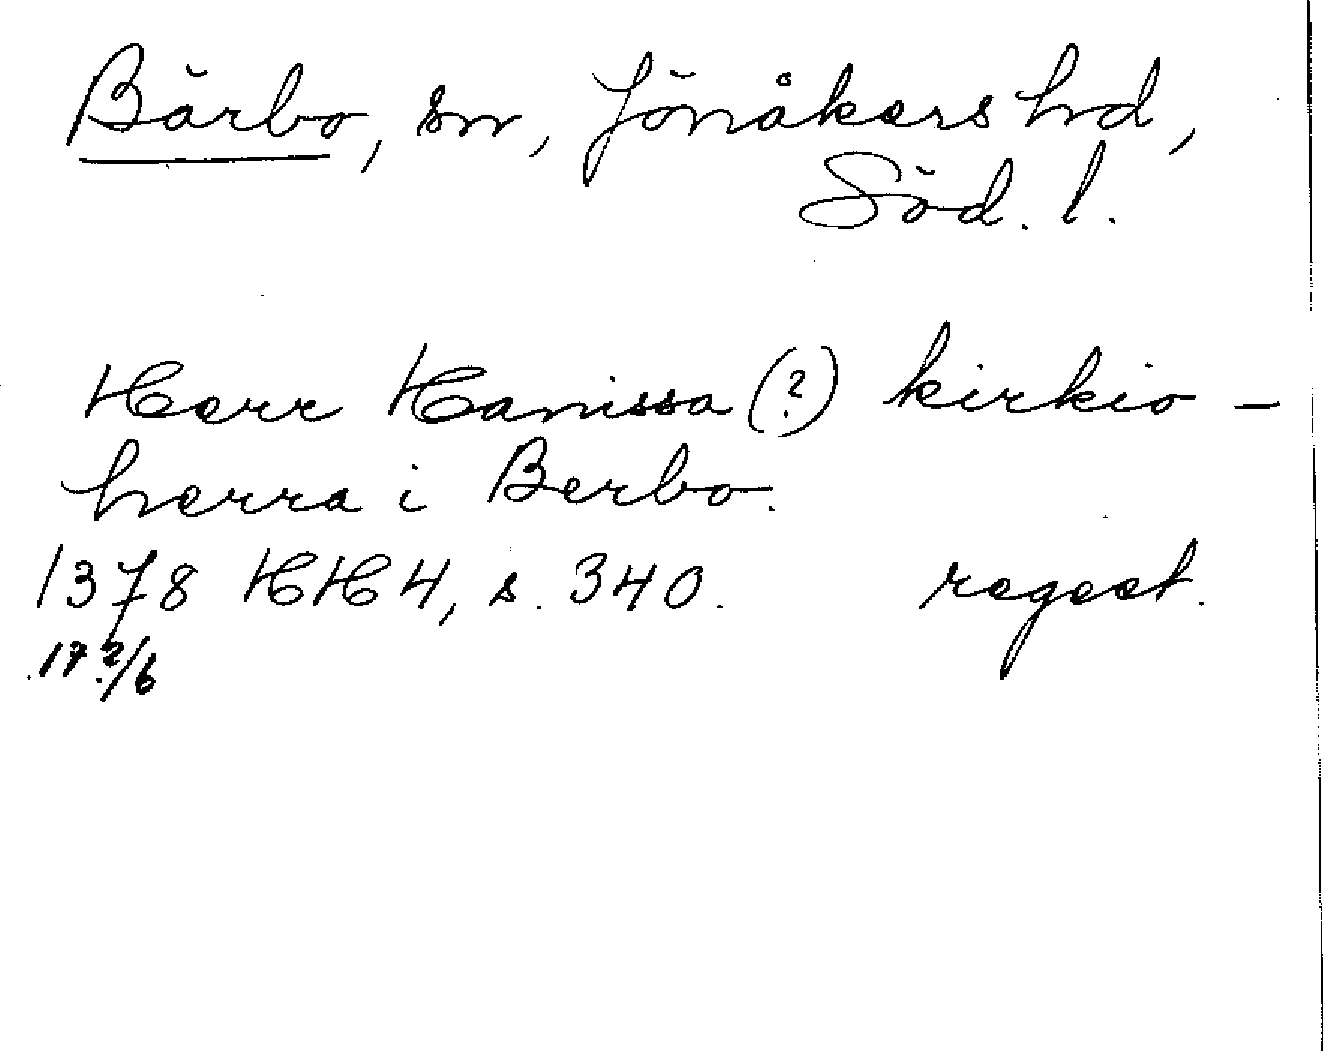 Bärbo, sn, Jönåkers hd,
Söd. l.
Herr Hanissa (?) kirkio-
herra i Berbo.
1378 HH 4, s. 340. regest.
17?/6